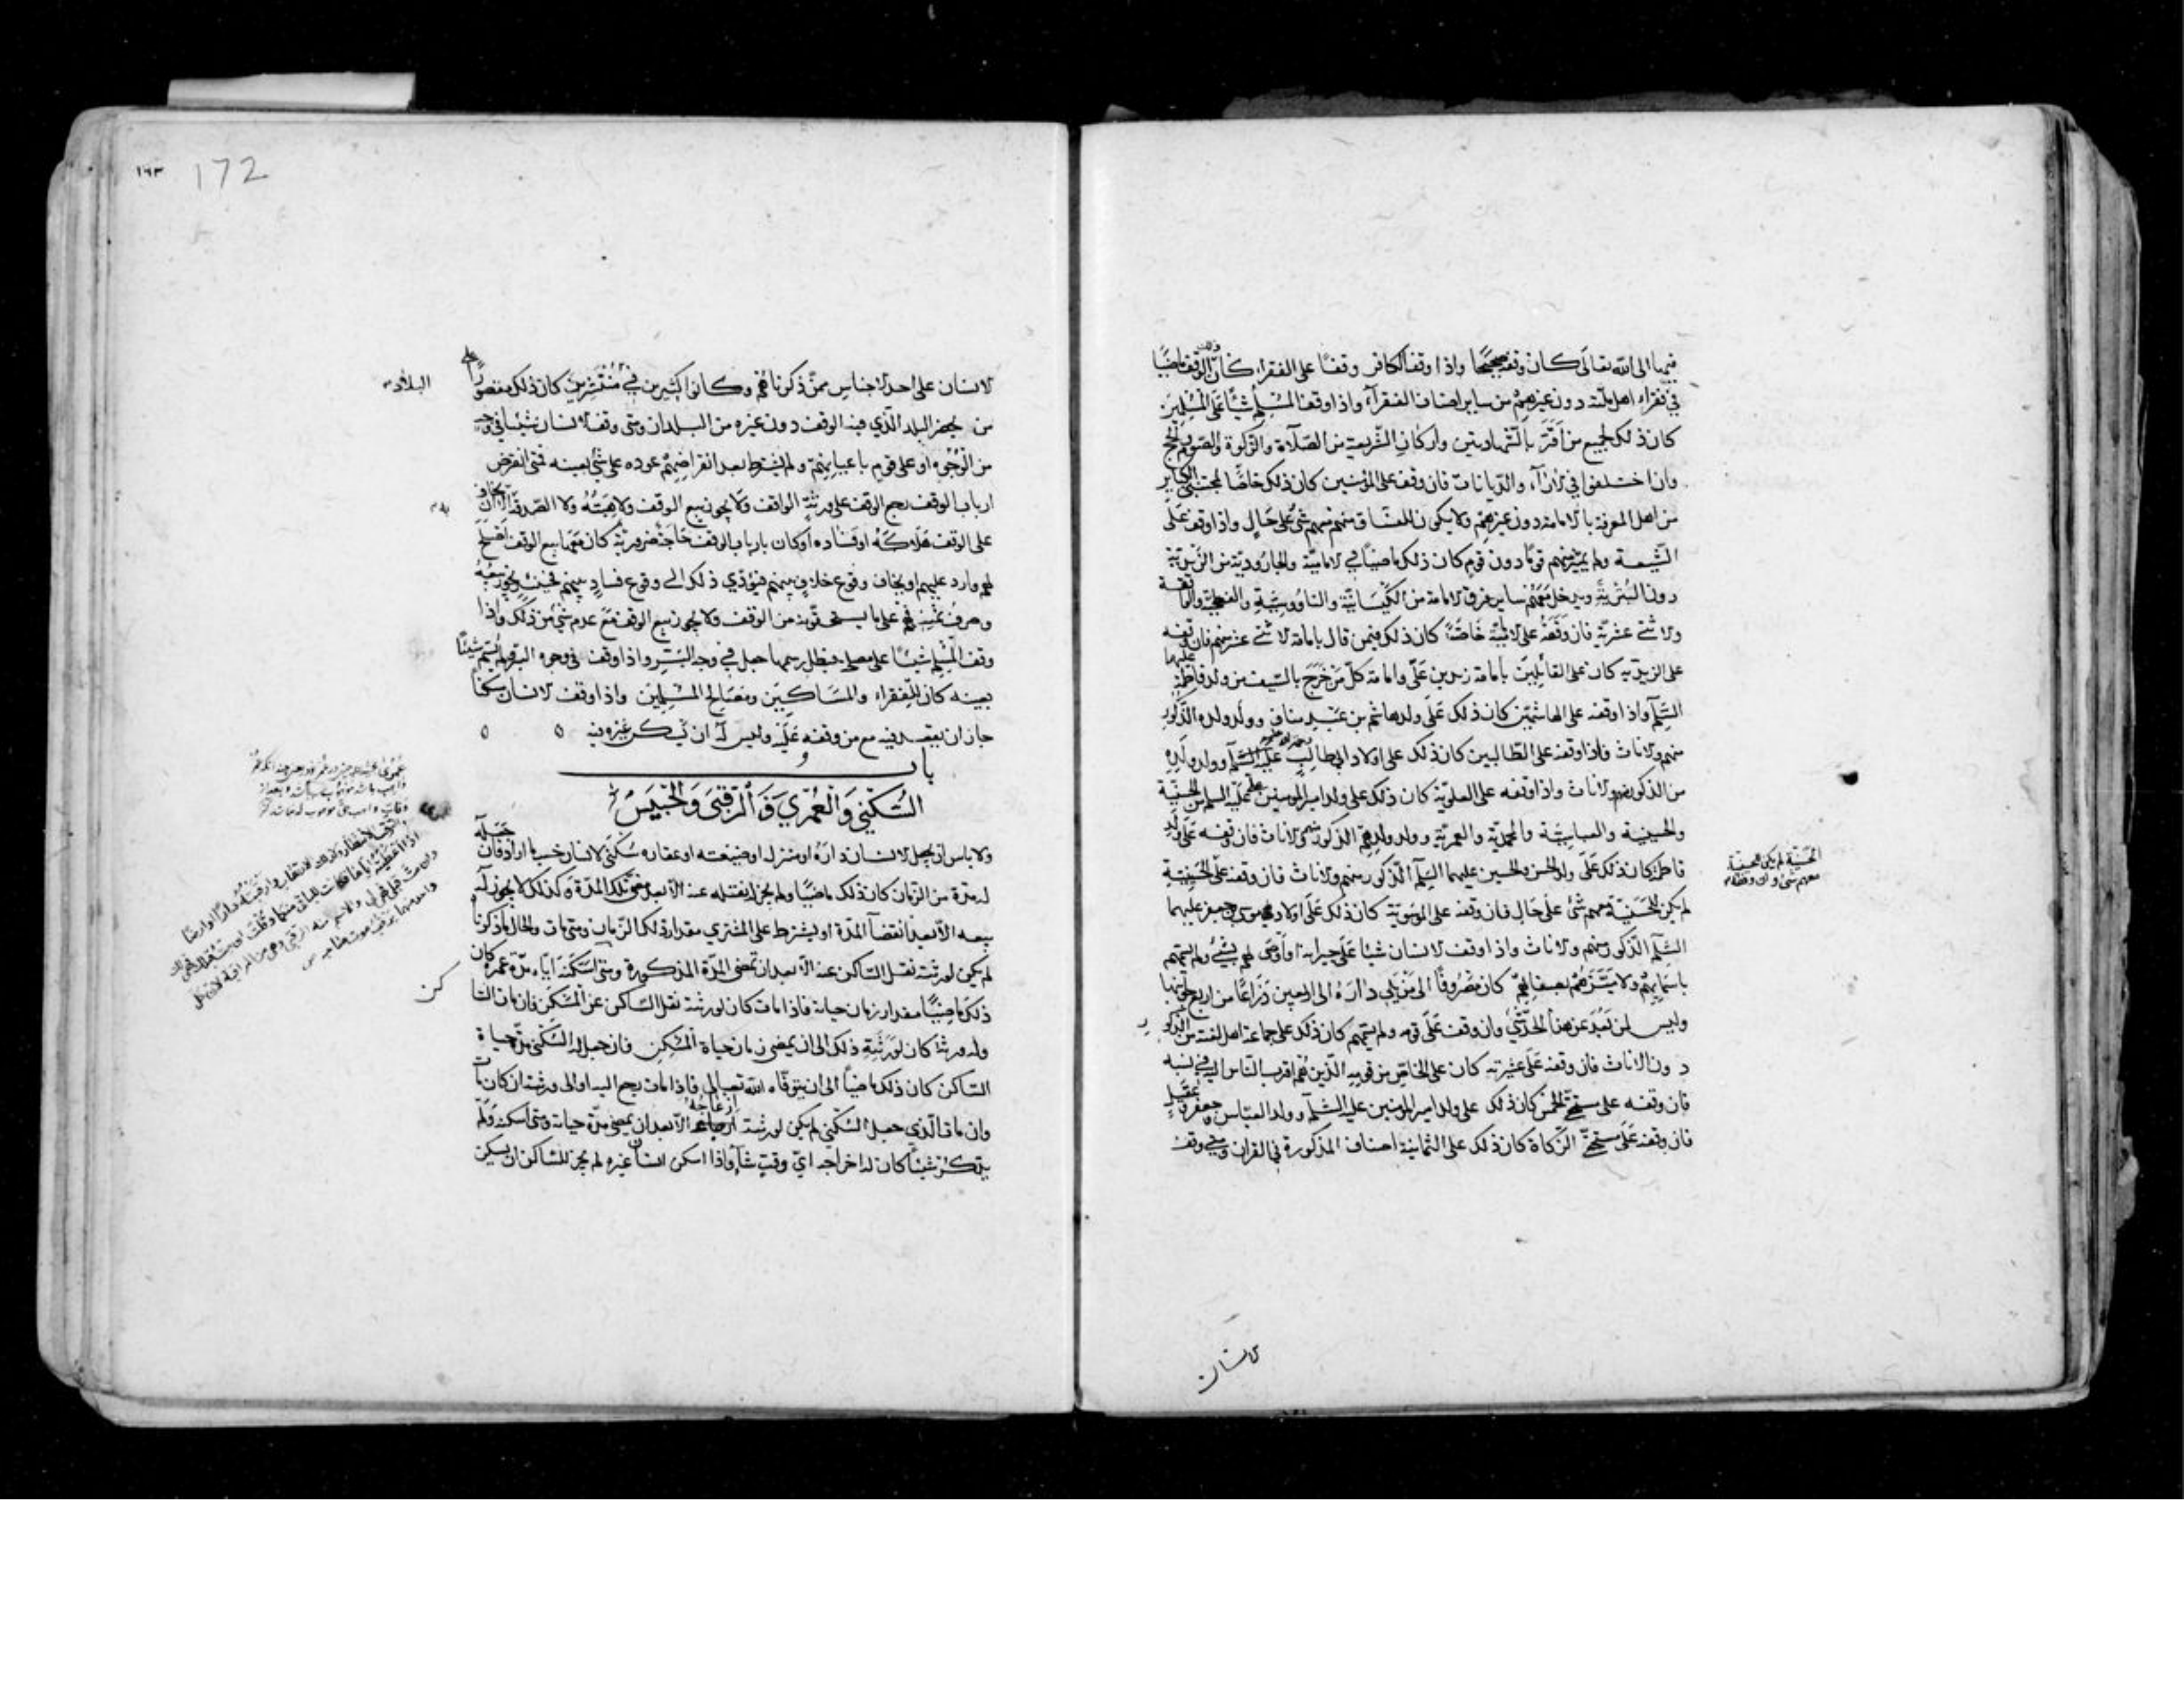 فيها الى الله تعالى كان وقفه صحيحًا واذا وقف الكافر وقفًا على الفقراء كان ذلك الوقف ماضيًا
في فقراء اهل ملته دون غيرهم من ساير اصناف الفقرآء واذا وقف المسلم شيئًا على المسلمين
كان ذلك لجميع من اقر بالشهادتين واركان الشريعة من الصلاة والزكوة والصوم والحج
وان اختلفوا في الارآء والديانات فان وقف على المؤمنين كان ذلك خاصًا لمجتنبي الكباير
من اهل المعرفة بالامامة دون غيرهم ولا يكون للفساق منهم معهم شئ على حال واذا وقف على
الشيعة ولم يميز منهم قومًا دون قوم كان ذلك ماضيًا في الامامية والجارودية من الزيدية
دون البترية ويدخل معهم ساير فرق الامامة من الكيسانية والناووسية والفطحية والواقفة
والاثنى عشرية فان وقفه على الامامية خاصة كان ذلك فيمن قال بامامة الاثنى عشر منهم فان وقفه
على الزيدية كان على القائلين بامامة زيد بن علي وامامة كل من خرج بالسيف من ولد فاطمة عليها
السلم واذا وقفه على الهاشميين كان ذلك على ولد هاشم بن عبد مناف وولد ولده الذكور
منهم والاناث فاذا وقفه على الطالبيين كان ذلك على اولاد ابي طالب عليه السلم وولد ولده
من الذكور منهم والاناث واذا وقفه على العلوية كان ذلك على ولد امير المومنين علي عليه السلم من الحسنية
والحسينية والعباسية والمحمدية والعمرية وولد ولدهم الذكور منهم والاناث فان وقفه على ولد
فاطمة كان ذلك على ولد الحسن والحسين عليهما السلم الذكور منهم والاناث فان وقفه على الحسينية
لم يكن للحسنية معهم شئ على حال فان وقفه على الموسوية كان ذلك على اولاد موسى بن جعفر عليهما
السلم الذكور منهم والاناث واذا وقف الانسان شيئا على جيرانه او اوصى لهم بشئ ولم يسمهم
باسمايهم ولا ميزهم بصفاتهم كان مصروفًا الى من يلي داره الى اربعين ذراعًا من اربع جوانبها
وليس لمن بعد عن هذا الحد شئ وان وقف على قومه ولم يسمهم كان ذلك على جماعة اهل لغته من الذكور
دون الاناث فان وقفه على عشيرته كان على الخاص من قومه الذين هم اقرب الناس اليه في نسبه
فان وقفه على مستحق الخمس كان ذلك على ولد امير المومنين عليه السلم وولد العباس وجعفر وعقيل
فان وقفه على مستحق الزكاة كان ذلك على الثمانية اصناف المذكورة في القران ومتى وقف
الانسان
172
١٦٣
الانسان على احد الاجناس ممن ذكرناهم وكانوا كثيرين في منتشرين كان ذلك مقصورًا على
البلاد
من يحضر البلد الذي فيه الوقف دون غيره من البلدان ومتى وقف الانسان شيئا في وجه
من الوجوه او على قوم باعيانهم ولم يشترط بعد انقراضهم عوده على شئ بعينه فمتى انقرض
ارباب الوقف رجع الوقف على ورثة الواقف ولا يجوز بيع الوقف ولا هبته ولا الصدقة به الا ان يخاف
على الوقف هلاكه او فساده او كان بارباب الوقف حاجة ضرورية كان معها بيع الوقف اصلح
لهم وارد عليهم او يخاف وقوع خلاف بينهم فيؤدي ذلك الى وقوع فساد بينهم فحينئذ يجوز بيعه
وصرف ثمنه فيهم على ما يستحقونه من الوقف ولا يجوز بيع الوقف مع عدم شئ من ذلك واذا
وقف المسلم شيئا على مصلحة فبطل رسمها جعل في وجه البر واذا وقف في وجوه البر ولم يسم شيئًا
بعينه كان للفقراء والمساكين ومصالح المسلمين واذا وقف الانسان مسكنا
جاز ان يقعد فيه مع من وقفه عليه وليس له ان يسكن غيره فيه
باب
السكنى والعمرى والرقبى والحبيس
ولا باس ان يجعل الانسان داره او منزله او ضيعته او عقاره سكنى لانسان حسب ما اراد فان جعله
له مدة من الزمان كان ذلك ماضيًا ولم يجز له نقله عنه الا بعد مضى تلك المدة وكذلك لا يجوز له
بيعه الا بعد انقضآ المدة او يشترط على المشتري مقدار ذلك الزمان ومتى مات والحال ما ذكرنا
لم يكن لورثته نقل الساكن عنه الا بعد ان تمضى المدة المذكورة ومتى اسكنه اياه مدة عمره كان
ذلك ماضيًا مقدار زمان حياته فاذا مات كان لورثته نقل الساكن عن المسكن فان مات الساكن
وله ورثة كان لورثته ذلك الى ان يمضى زمان حياة المسكن فان جعل له السكنى مدة حياة
الساكن كان ذلك ماضيًا الى ان يتوفاه الله تعالى فاذا مات رجع اليه او الى ورثته ان كان مات
وان مات الذي جعل السكنى لم يكن لورثته ازعاجه الا بعد ان يمضى مدة حياته ومتى اسكنه ولم
يذكر شيئا كان له اخراجه اي وقت شآء واذا اسكن انسان غيره لم يجز للساكن ان يسكن